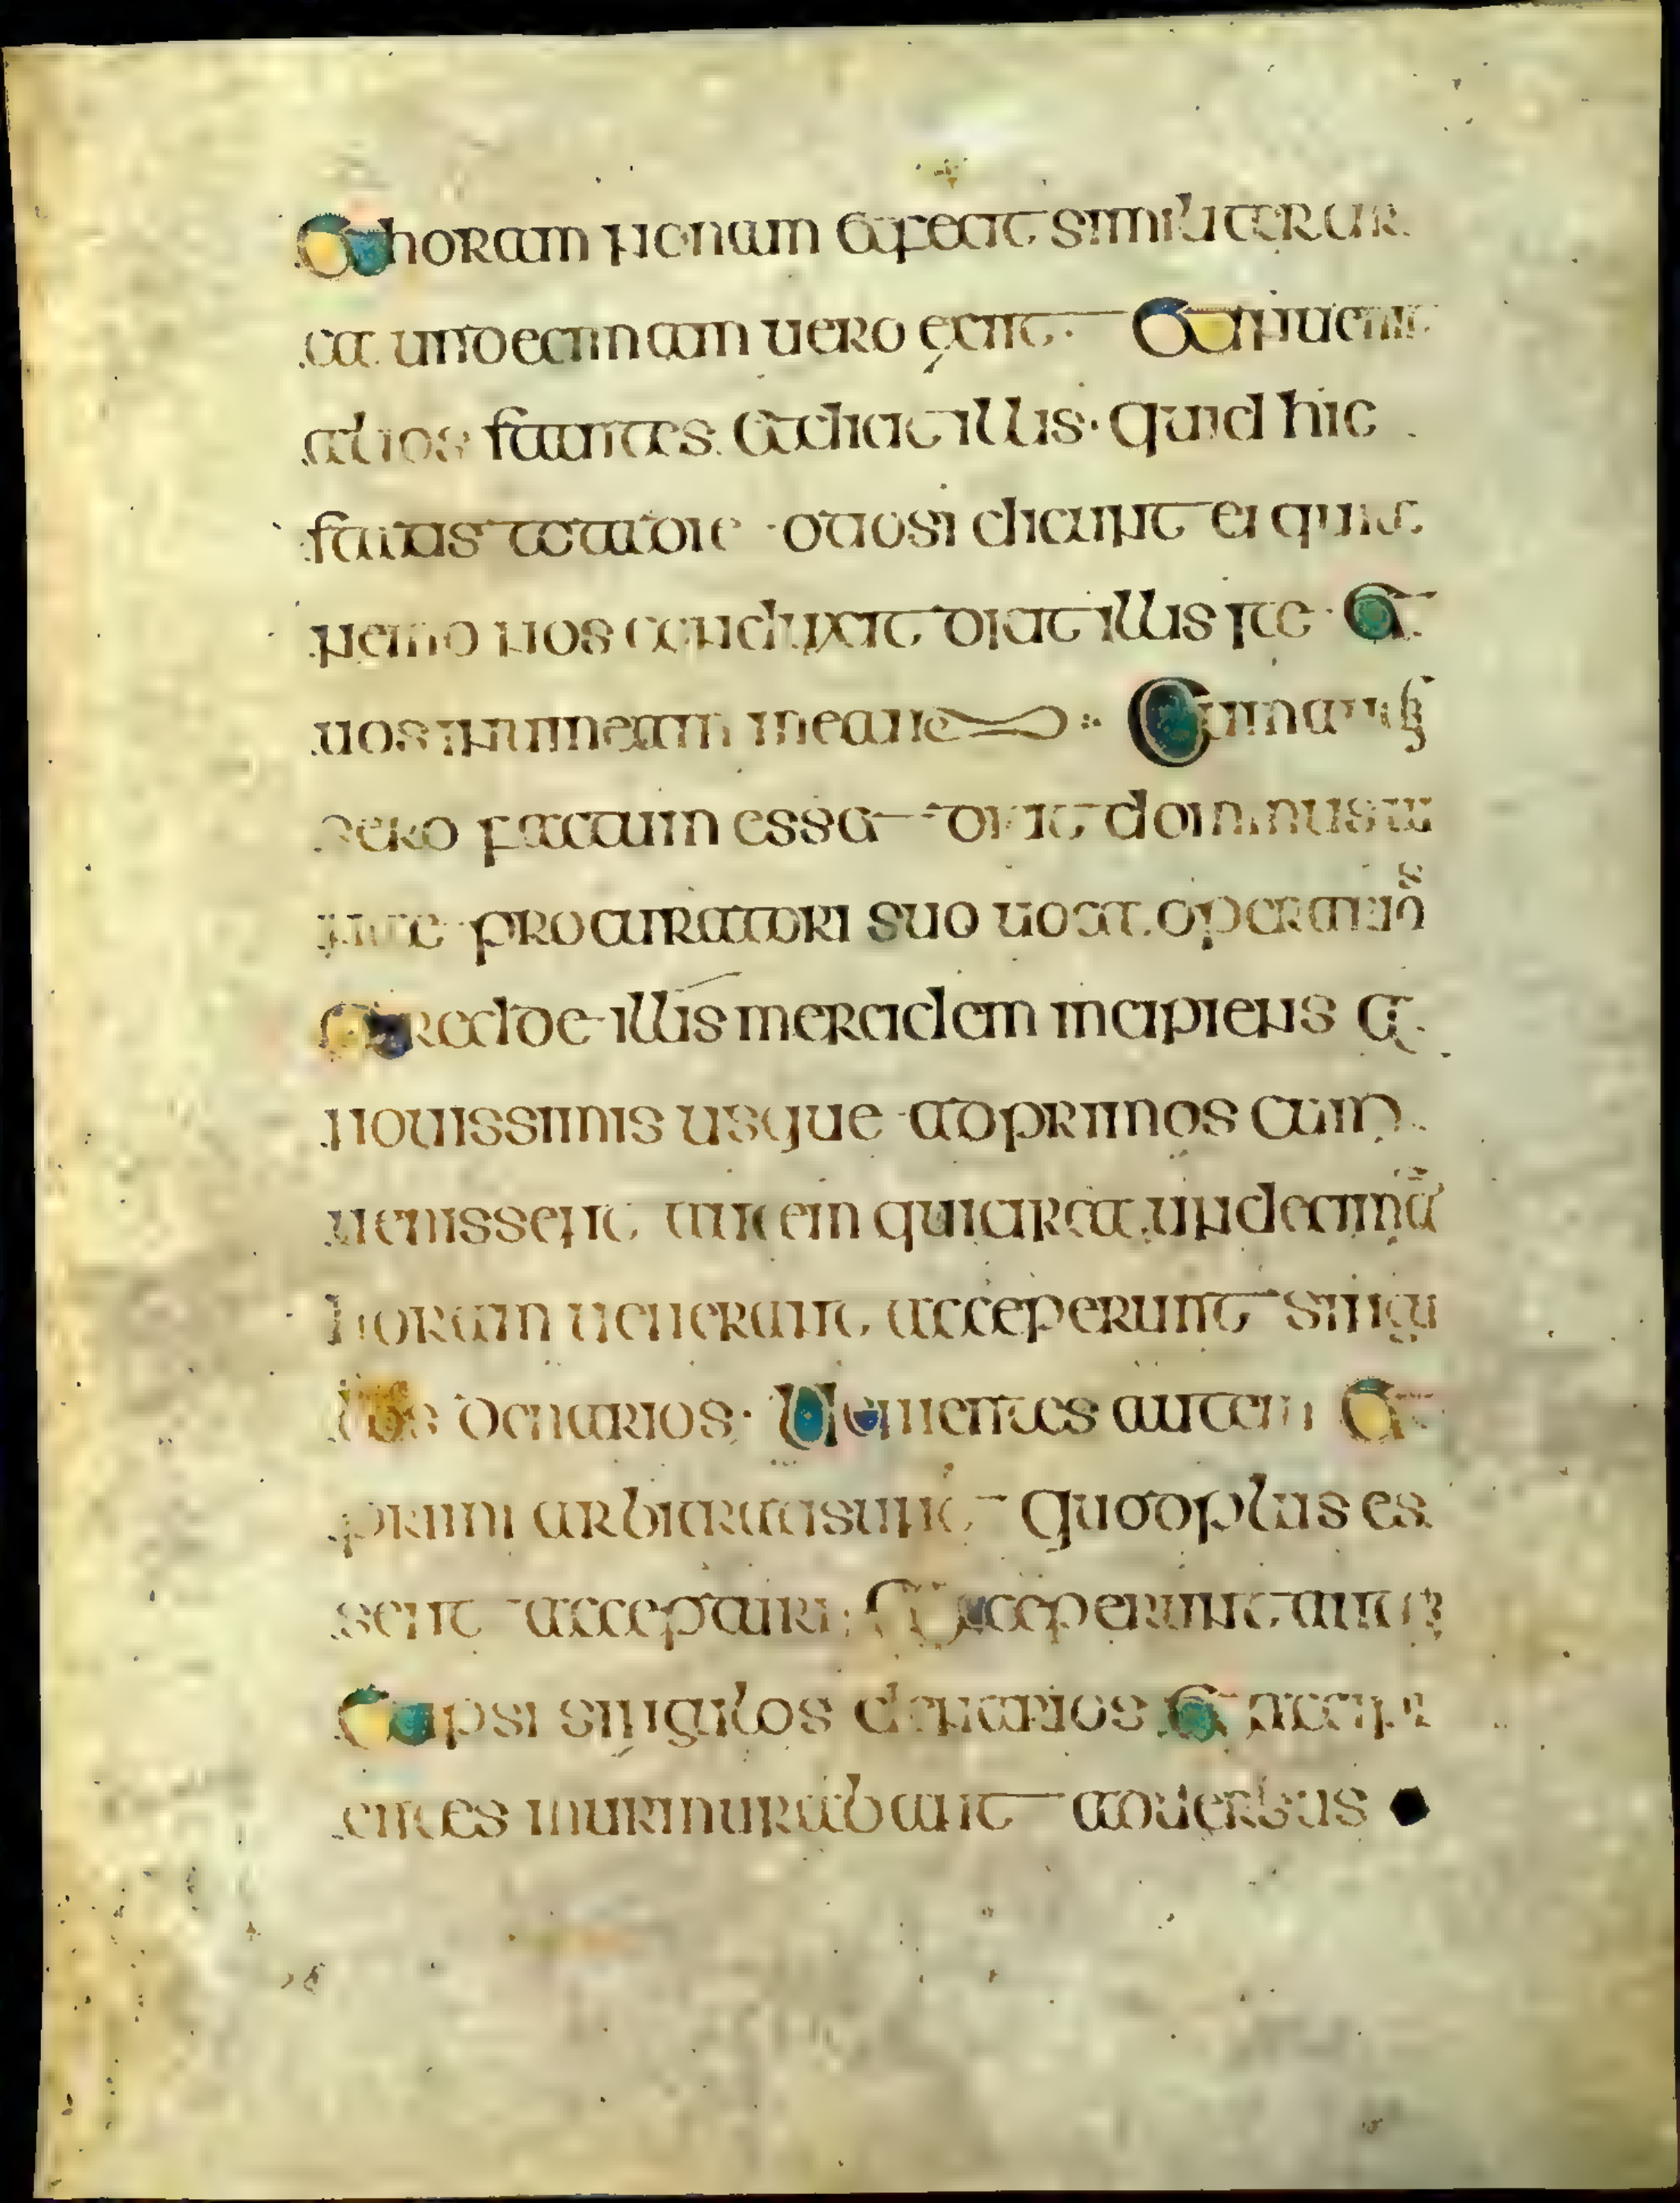 Et horam nonam et fecit similiter cir
ca undecimam uero exiit · Et inuenit
alios stantes et dicit illis · quid hic
statis tota die · otiosi dicunt ei quia
nemo nos conduxit dicit illis ite · et
uos in uineam meam : Cum autē
sero factum esset dicit dominus ui
niae procuratori suo uocat operarios
Et redde illis mercidem incipiens a
nouissimis usque ad primos cum
uenissent autem qui circa undecimā
horam uenerant acceperunt singu
los denarios · Uenientes autem et
primi arbitrati sunt quod plus es
sent accepturi : Acceperunt autē
et ipsi singulos denarios et accipi
entes murmurabant aduersus